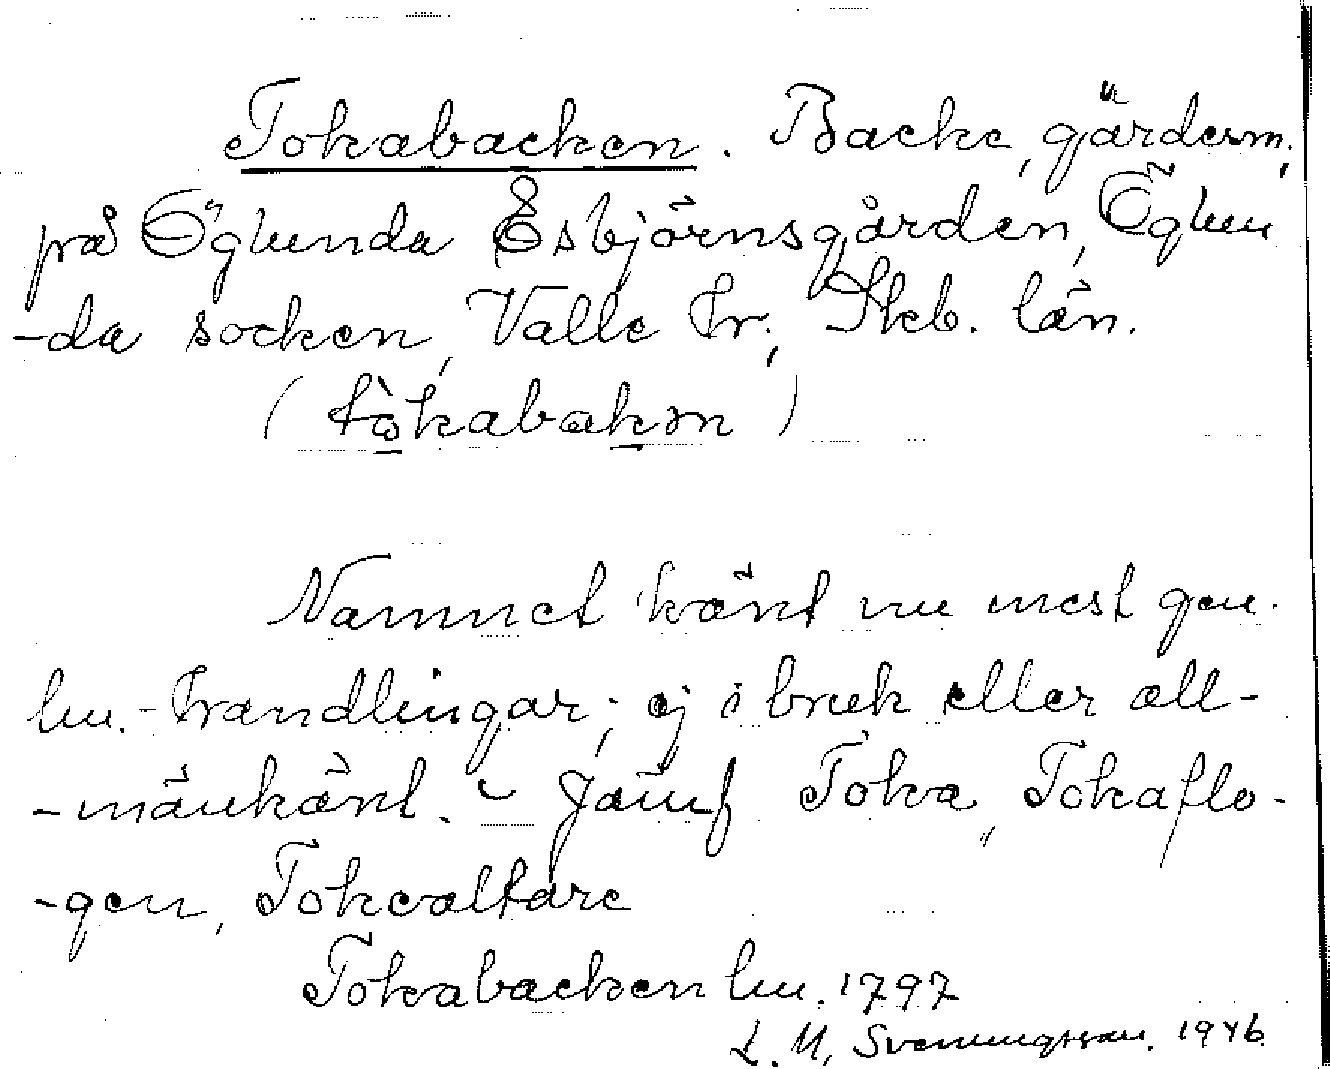 Tokabacken. Backe, gärdesm,
på Öglunda Esbjörnsgården, Öglun
-da socken, Valle hr, Skb. län.
(tò̱kabak̲ən)
Namnet känt nu mest gen.
lm.-handlingar; ej i bruk eller all-
-mänkänt. - Jämf Toka, Tokaflo-
-gen, Tokaaltare
Tokabacken lm. 1797
L. M. Svenungsson. 1946.